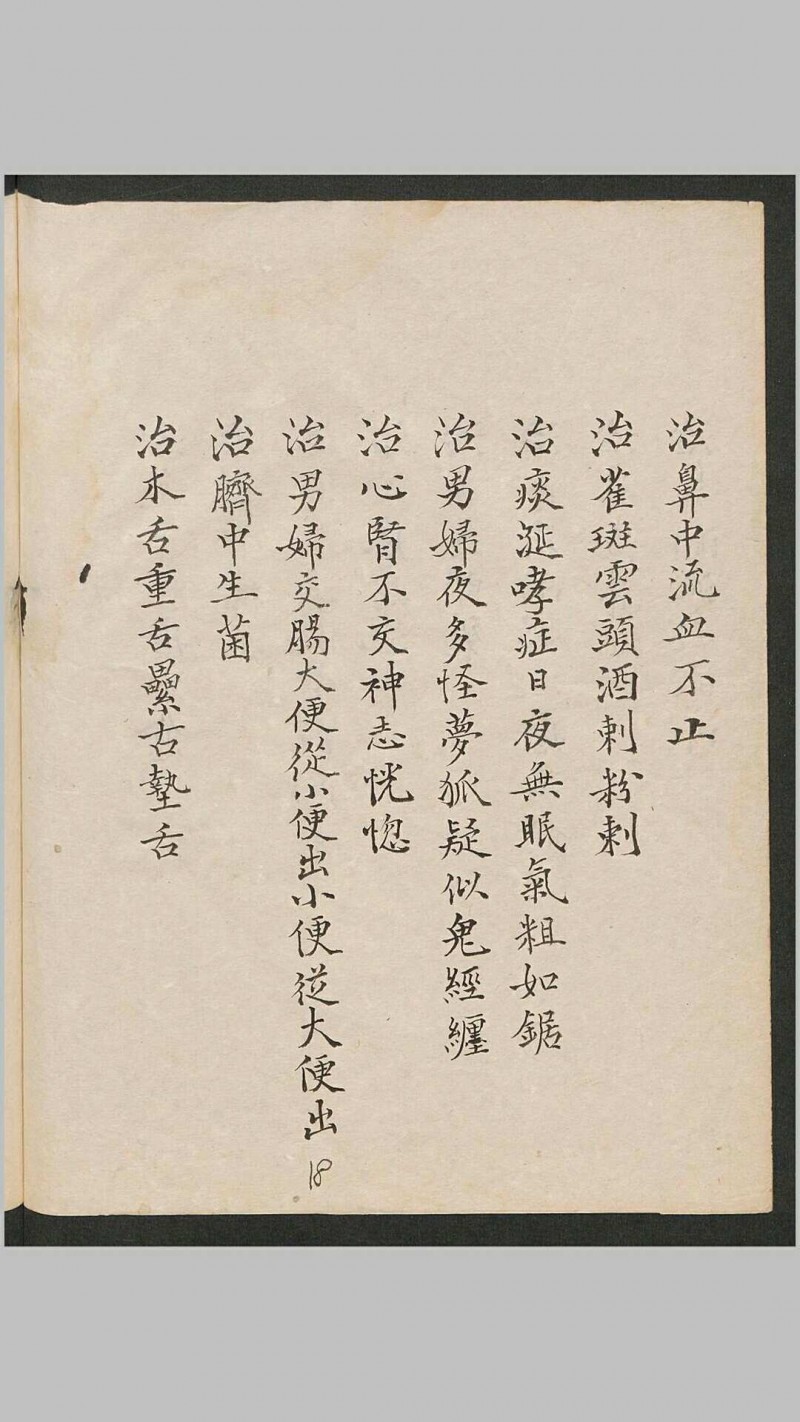 治鼻中流血不止
治雀斑雲頭酒刺粉刺
治痰涎哮症日夜無眠氣粗如鋸
治男婦夜多怪夢狐疑似鬼經纏
治心腎不交神志恍惚
治男婦交腸大便從小便出小便從大便出
治臍中生菌
治木舌重舌纍舌墊舌
18